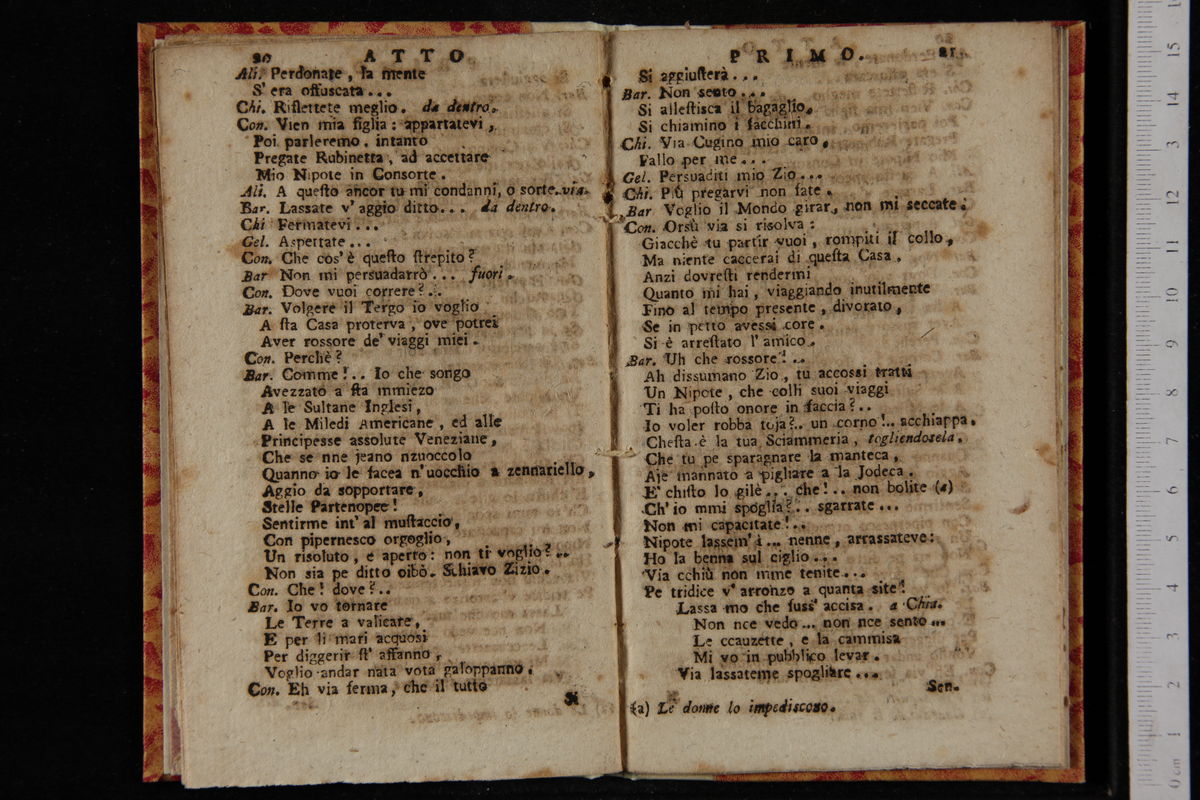 20 ATTO
Ali. Perdonate, la mente
S' era offuscata...
Chi. Riflettete meglio. da dentro.
Con. Vien mia figlia: appartatevi,
Poi parleremo. intanto
Pregate Rubinetta, ad accettare
Mio Nipote in Consorte.
Ali. A questo ancor tu mi condanni, o sorte. via.
Bar. Lassate v' aggio ditto... da dentro.
Chi Fermatevi...
Gel. Aspettate...
Con. Che cos' è questo strepito?
Bar Non mi persuadarrò... fuori.
Con. Dove vuoi correre?..
Bar. Volgere il Tergo io voglio
A sta Casa proterva, ove potrei
Aver rossore de' viaggi miei.
Con. Perchè?
Bar. Comme!.. Io che songo
Avezzato a sta mmiezo
A le Sultane Inglesi,
A le Miledi Americane, ed alle
Principesse assolute Veneziane,
Che se nne jeano nzuoccolo
Quanno io le facea n'uocchio a zennariello,
Aggio da sopportare,
Stelle Partenopee!
Sentirme int' al mustaccio,
Con pipernesco orgoglio,
Un risoluto, e aperto: non ti voglio?..
Non sia pe ditto oibò. Schiavo Zizio.
Con. Che! dove?..
Bar. Io vo tornare
Le Terre a valicare,
E per li mari acquosi
Per diggerir st' affanno,
Voglio andar nata vota galoppanno.
Con. Eh via ferma, che il tutto
Si
PRIMO. 21
Si aggiusterà...
Bar. Non sento...
Si allestisca il bagaglio,
Si chiamino i facchini.
Chi. Via Cugino mio caro,
Fallo per me...
Gel. Persuaditi mio Zio...
Chi. Più pregarvi non fate.
Bar Voglio il Mondo girar, non mi seccate.
Con. Orsù via si risolva:
Giacchè tu partir vuoi, rompiti il collo,
Ma niente caccerai di questa Casa.
Anzi dovresti rendermi
Quanto mi hai, viaggiando inutilmente
Fino al tempo presente, divorato,
Se in petto avessi core.
Si è arrestato l' amico.
Bar. Uh che rossore!..
Ah dissumano Zio, tu accossi tratti
Un Nipote, che colli suoi viaggi
Ti ha posto onore in faccia?..
Io voler robba toja?.. un corno!.. acchiappa.
Chesta è la tua Sciammeria, togliendosela.
Che tu pe sparagnare la manteca,
Aje mannato a pigliare a la Jodeca.
E' chisto lo gilè... che!.. non bolite (a)
Ch' io mmi spoglia?.. sgarrate...
Non mi capacitate!..
Nipote lassem' i... nenne, arrassateve:
Ho la benna sul ciglio...
Via cchiù non mme tenite...
Pe tridice v' arronzo a quanta site!
Lassa mo che fuss' accisa. a Chia.
Non nce vedo... non nce sento...
Le ccauzette, e la cammisa
Mi vo in pubblico levar.
Via lassateme spogliare...
Sen.
(a) Le donne lo impediscono.